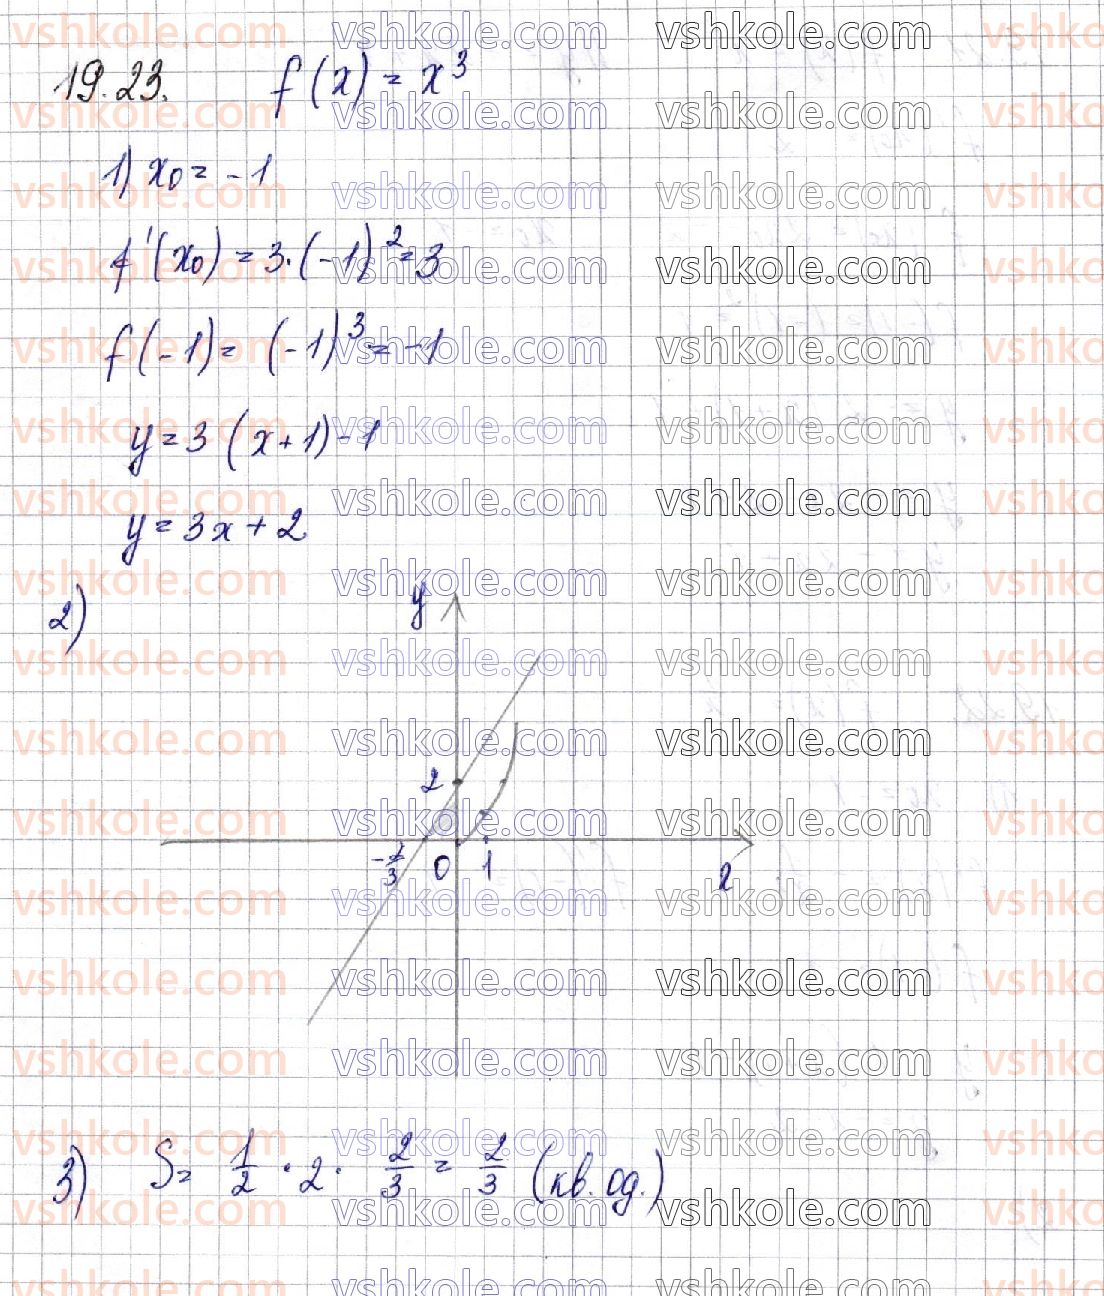 19.23. f(x) = x³
1) x₀ = -1
f'(x₀) = 3·(-1)² = 3
f(-1) = (-1)³ = -1
y = 3(x+1)-1
y = 3x+2
2)
y
2
-2/3 0 1
3) S = 1/2 · 2 · 2/3 = 2/3 (кв. од.)
vshkole.com